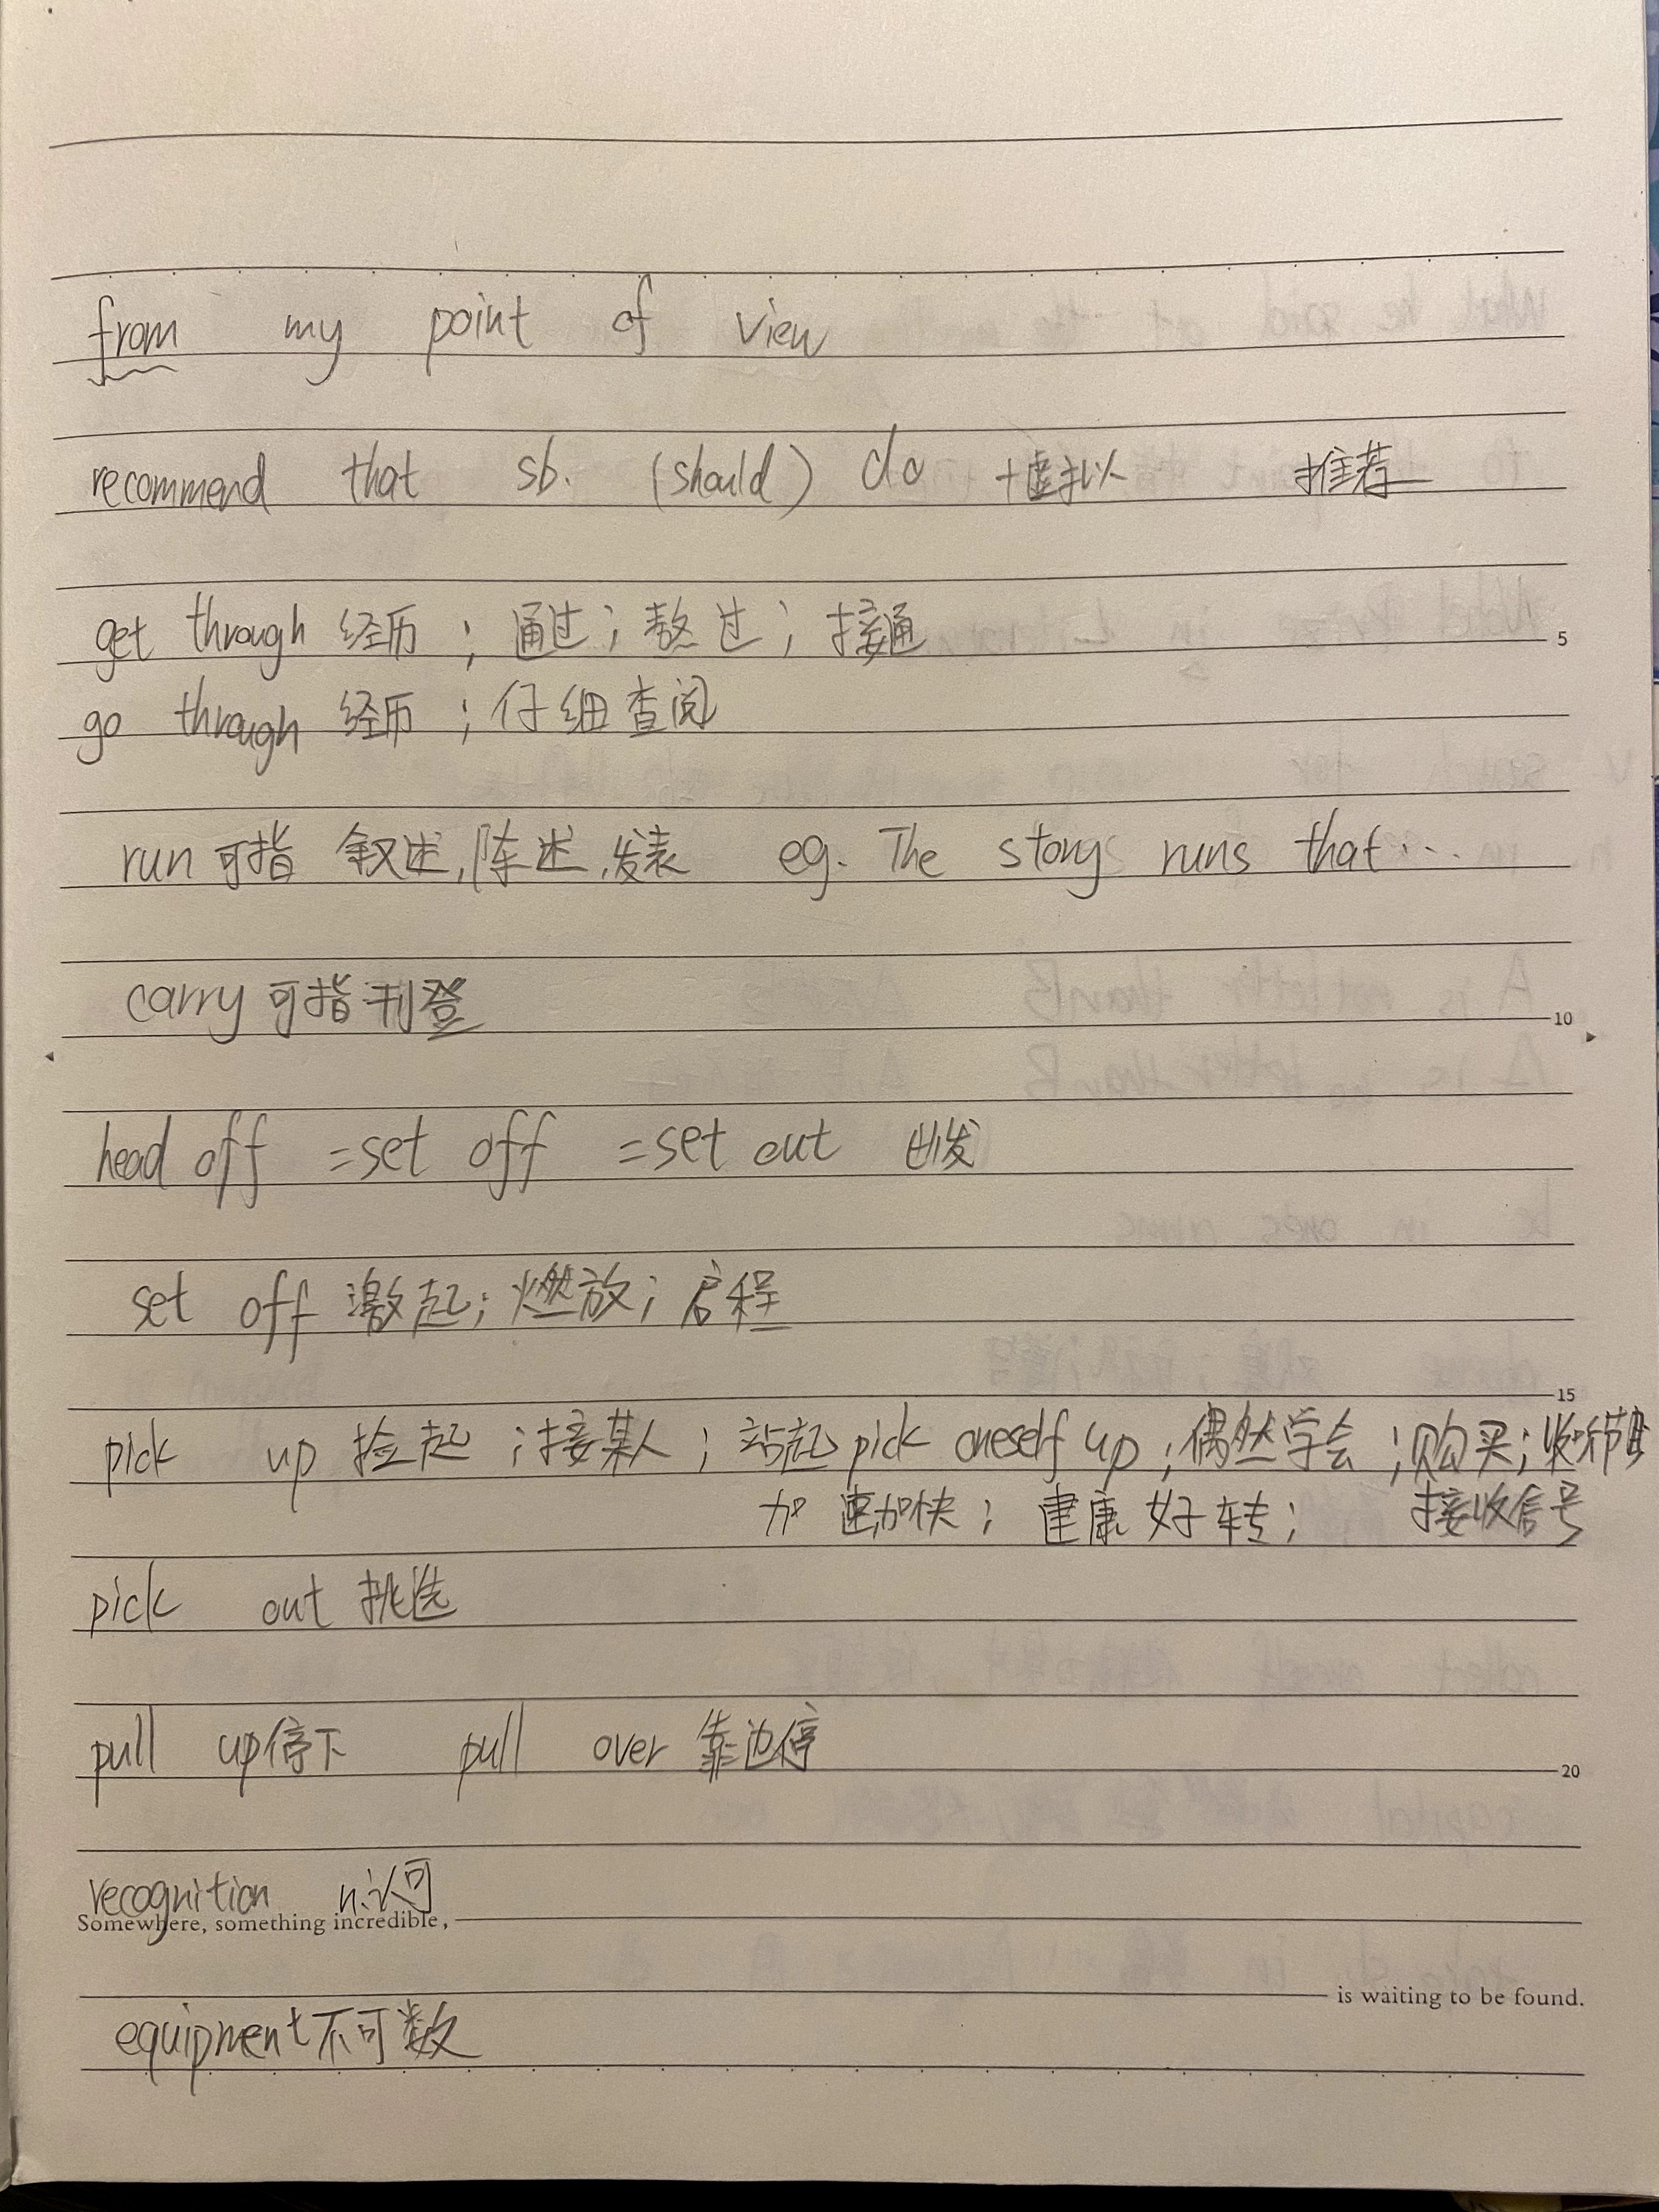 from my point of view
recommend that sb. (should) do +虚拟 推荐
get through 经历；通过；熬过；接通
go through 经历；仔细查阅
5
run 可指 叙述，陈述，发表 eg. The story runs that...
carry 可指刊登
10
head off =set off =set out 出发
set off 激起；燃放；启程
pick up 捡起；接某人；站起 pick oneself up；偶然学会；购买；收拾
15
加速加快；健康好转；接收信号
pick out 挑选
pull up停下 pull over 靠边停
20
recognition n.认可
Somewhere, something incredible,
is waiting to be found.
equipment不可数